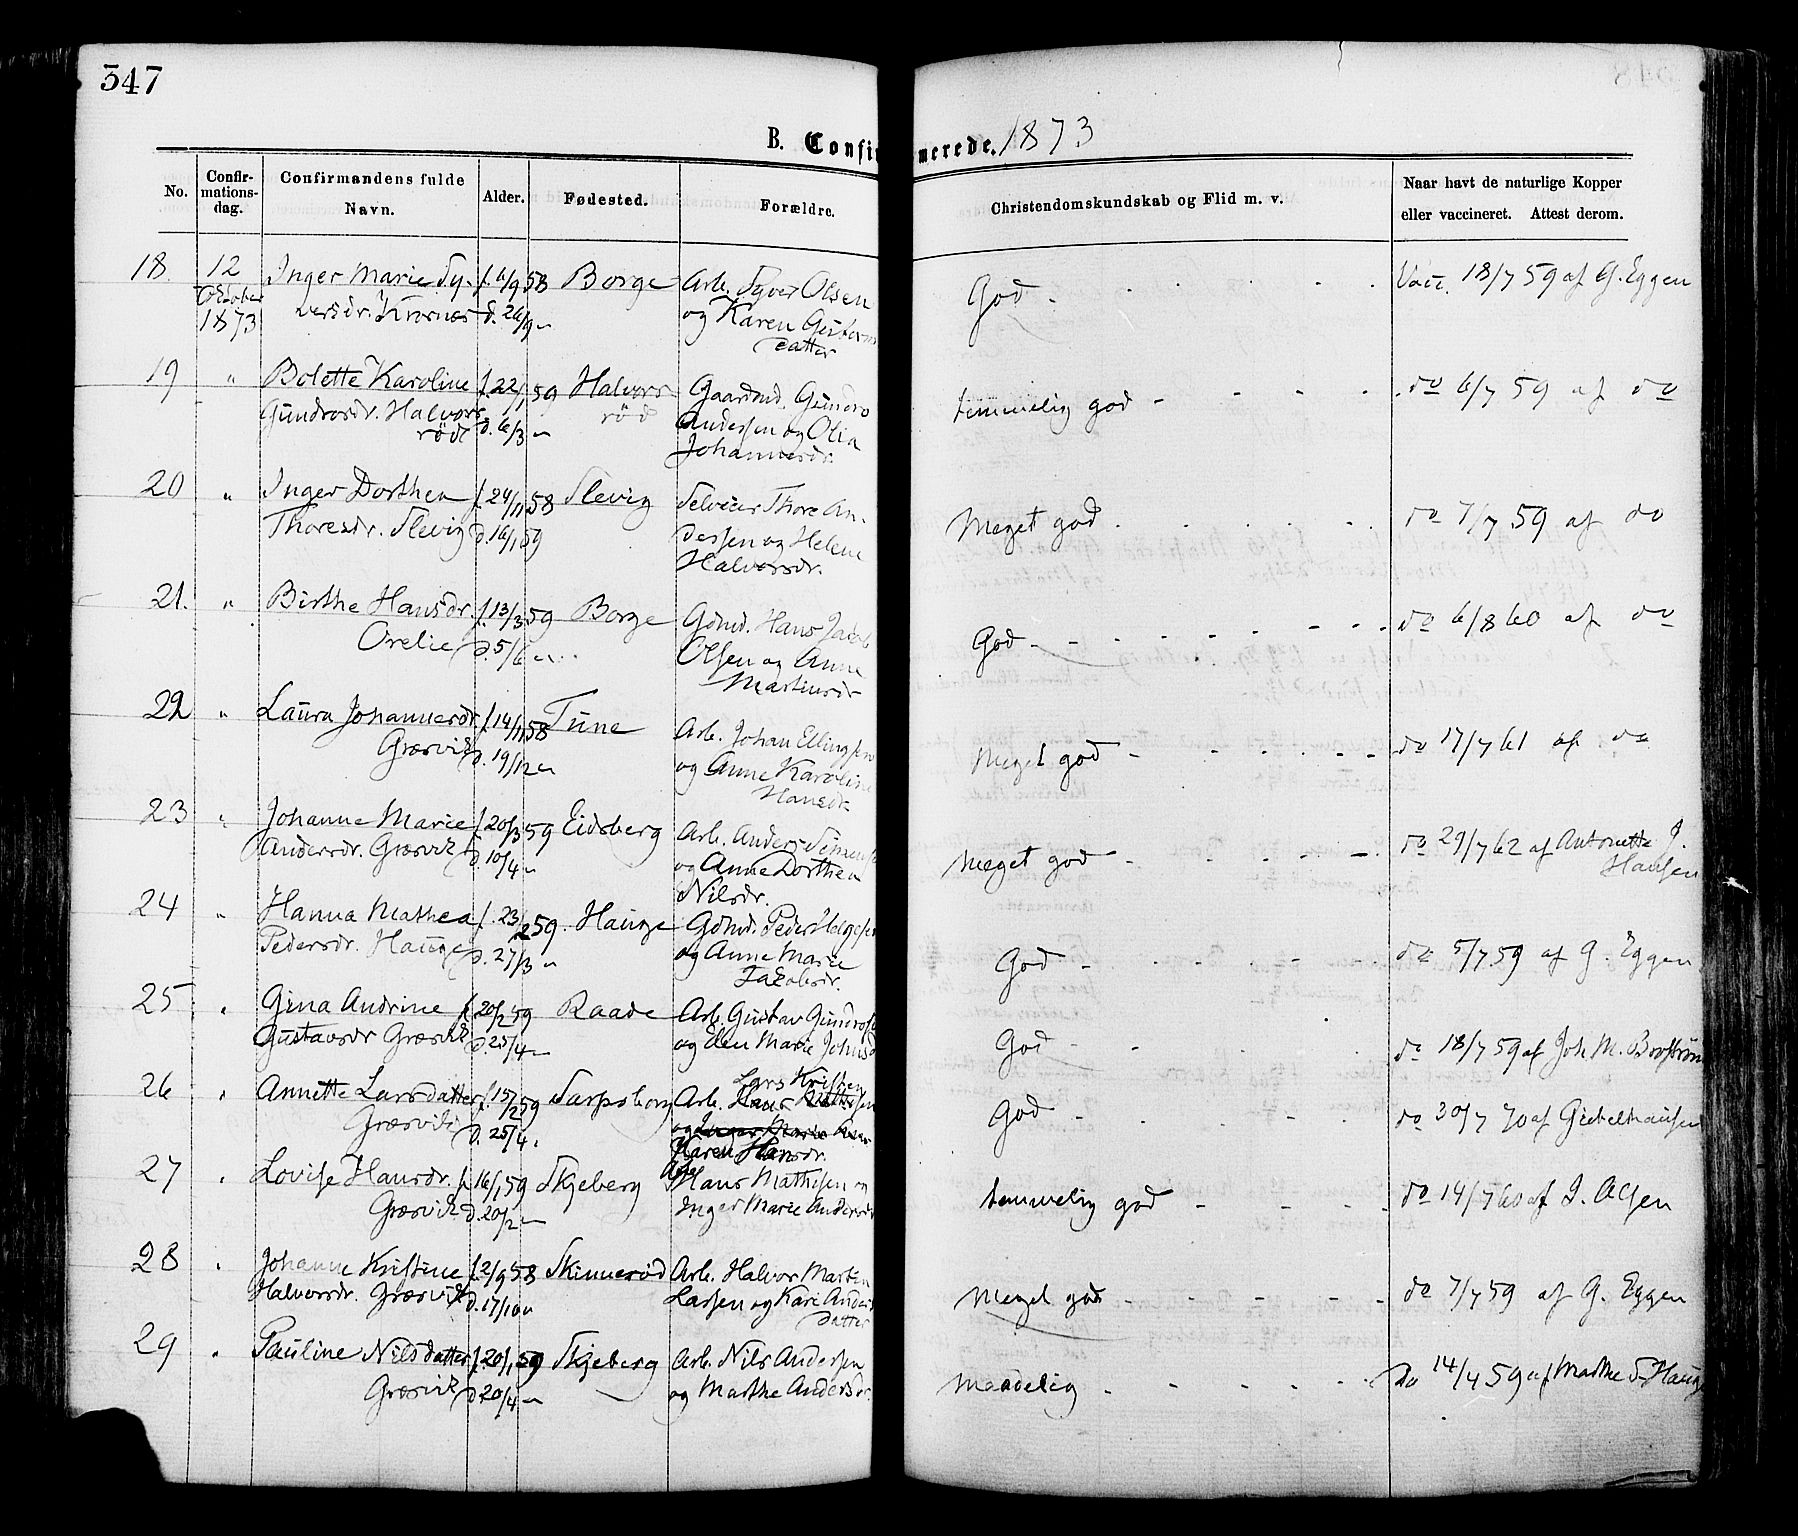 347
B. Confirmerede. 1873
No.
Confir-
mations-
dag.
Confirmandens fulde
Navn.
Alder.
Fødested.
Forældre.
Christendomskundskab og Flid m. v.
Naar havt de naturlige Kopper
eller vaccineret. Attest derom.
18. 12 Inger Marie Sy- f. 6/9 58 Borge Arb. Syver Olsen God Vacc. 18/7 59 af G. Eggen
October versdr. Krornæs d. 26/9 " og Karen Gustavs
1873 datter
19 " Bolette Karoline f. 22/1 59 Halvors Gaardmd. Gundro temmelig god do 6/7 59 af do
Gundrosdr. Halvors d. 6/3 " rød Andersen og Olia
rød Johannesdr.
20 " Inger Dorthea f. 24/11 58 Slevig Selveier Thore An- Meget god do 7/7 59 af do
Thoresdr. Slevig d. 16/1 59 dersen og Helene
Halvorsdr.
21. " Birthe Hansdr. f. 13/3 59 Borge Gdmd. Hans Jacob God do 6/8 60 af do
Orelie d. 5/6 " Olsen og Anne
Martinsdr
22 " Laura Johannesdr. f. 14/11 58 Tune Arb. Johan Ellingsen Meget god do 17/7 61 af do
Græsvik d. 19/12 " og Anne Karoline
Hansdr
23 " Johanne Marie f. 20/3 59 Eidsberg Arb. Anders Simens Meget god do 29/7 62 af Antonette J.
Andersdr. Græsvik d. 10/4 " og Anne Dorthea Hansen
Nilsdr.
24 " Hanna Mathea f. 23/2 59. Hauge Gdmd. Peder Helgesen God do 5/7 59 af G. Eggen
Pedersdr. Hauge d. 27/3 " og Anne Marie
Jakobsdr.
25 " Gina Andrine f. 20/2 59 Raade Arb. Gustav Gundros God do 18/7 59 af Joh. M.
Gustavsdr Græsvik d. 25/4 " og Elen Marie Johns
Lars Kristen
26 " Annette Larsdatter f. 15/2 59 Sarpsborg Arb. God do 30/7 70 af Giebelhausen
Græsvik d. 25/4. og Inger Marie
Karen Hansdr.
27 " Lovise Hansdr. f. 16/1 59 Skjeberg Arb. Hans Mathisen og temmelig god do 14/7 60 af J. Olsen
Græsvik d. 20/2 " Inger Marie Andersdr
28 " Johanne Kristine f. 2/9 58 Skinnerød Arb. Halvor Martin Meget god do 7/7 59 af G. Eggen
Halvorsdr. Græsvik d. 17/10 " Larsen og Kari Anders
datter
29 " Pauline Nilsdatter f. 20/1 59 Skjeberg Arb. Nils Andersen Maadelig Do 14/4 59 af Marthe S. Haug
Græsvik d. 20/4 " og Marthe Andersdr.